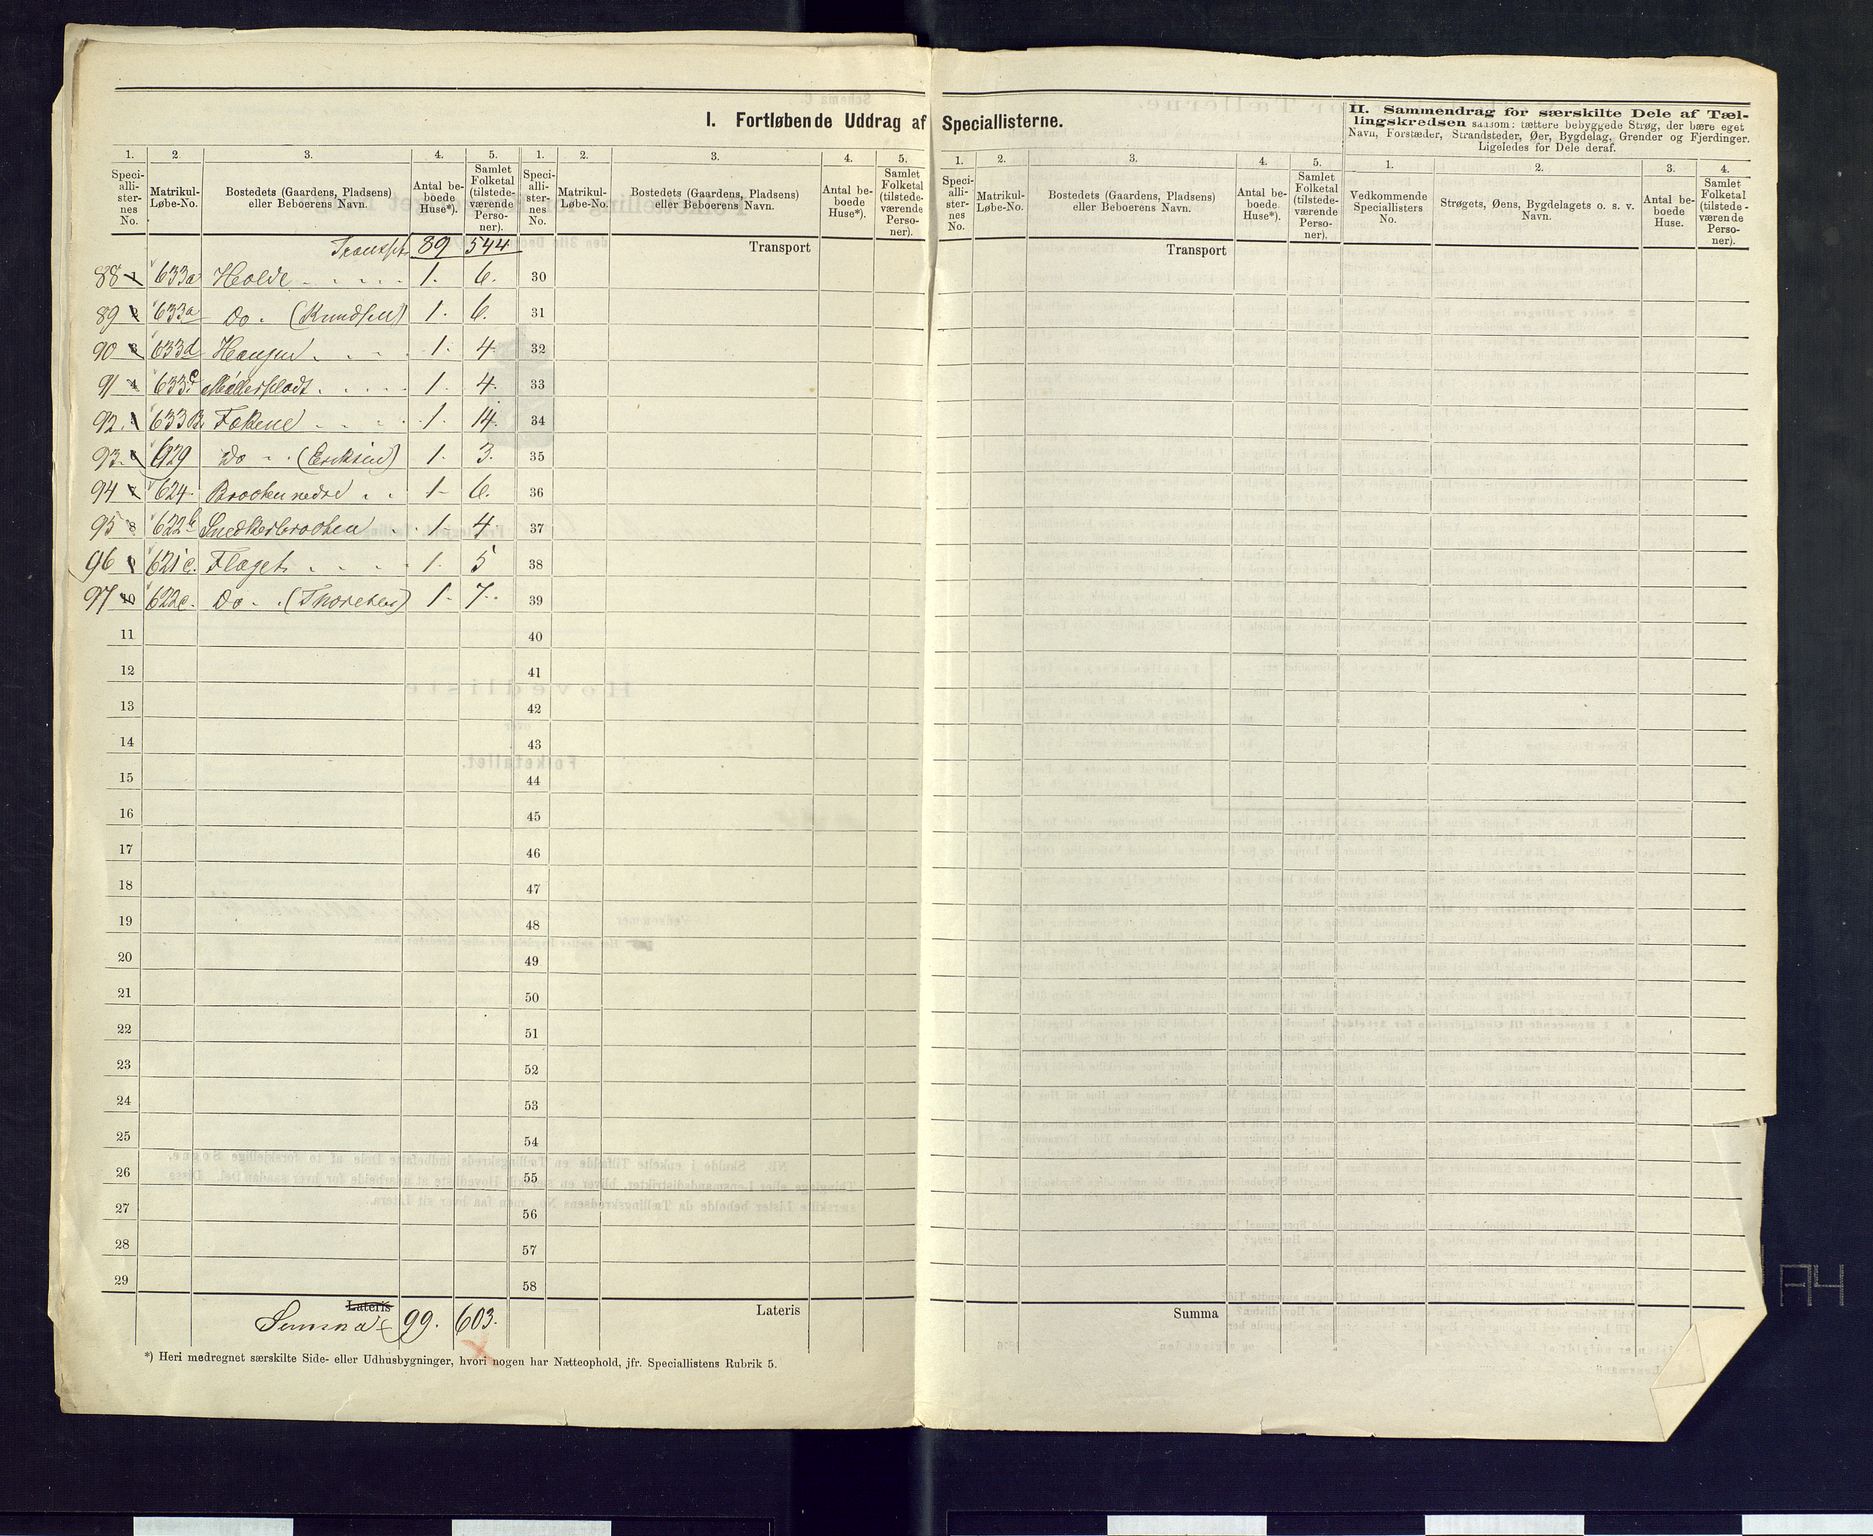 I. Fortløbende Uddrag af Speciallisterne.
II. Sammendrag for særskilte Dele af Tællingskredsen saasom: tættere bebyggede Strøg, der bære eget Navn, Forstæder, Strandsteder, Øer, Bygdelag, Grender og Fjerdinger. Ligeledes for Dele deraf.
1. 2. 3. 4. 5. 1. 2. 3. 4. 5. 1. 2. 3. 4. 5. 1. 2. 3. 4.
Speciallisternes No. Matrikul-Løbe-No. Bostedets (Gaardens, Pladsens) eller Beboerens Navn. Antal beboede Huse*). Samlet Folketal (tilstedeværende Personer).
Speciallisternes No. Matrikul-Løbe-No. Bostedets (Gaardens, Pladsens) eller Beboerens Navn. Antal beboede Huse*). Samlet Folketal (tilstedeværende Personer).
Speciallisternes No. Matrikul-Løbe-No. Bostedets (Gaardens, Pladsens) eller Beboerens Navn. Antal beboede Huse*). Samlet Folketal (tilstedeværende Personer).
Vedkommende Speciallisters No. Strøgets, Øens, Bygdelagets o. s. v. Navn. Antal beboede Huse. Samlet Folketal (tilstedeværende Personer).
Transport 89 544 Transport Transport
88 1 633a Holde 1. 6. 30
89 2 633a Do. (Knudsen) 1. 6. 31
90 3 633d Haugen 1. 4. 32
91 4 633c 1. 4. 33
92. 633B. Fokene 1. 14. 34
93. 929 Do (Eriksen) 1. 3. 35
94 624. Brooten nedre 1 6. 36
95 8 622b Snedkerbrooten 1 4. 37
96 621c. Flaget 1. 5 38
97 10 622c. Do. (Thoresen) 1. 7. 39
11 40
12 41
13 42
14 43
15 44
16 45
17 46
18 47
19 48
20 49
21 50
22 51
23 52
24 53
25 54
26 55
27 56
28 57
29 58
Lateris Summa 99. 603. Lateris Summa
*) Heri medregnet særskilte Side- eller Udhusbygninger, hvori nogen har Natteophold, jfr. Speciallistens Rubrik 5.